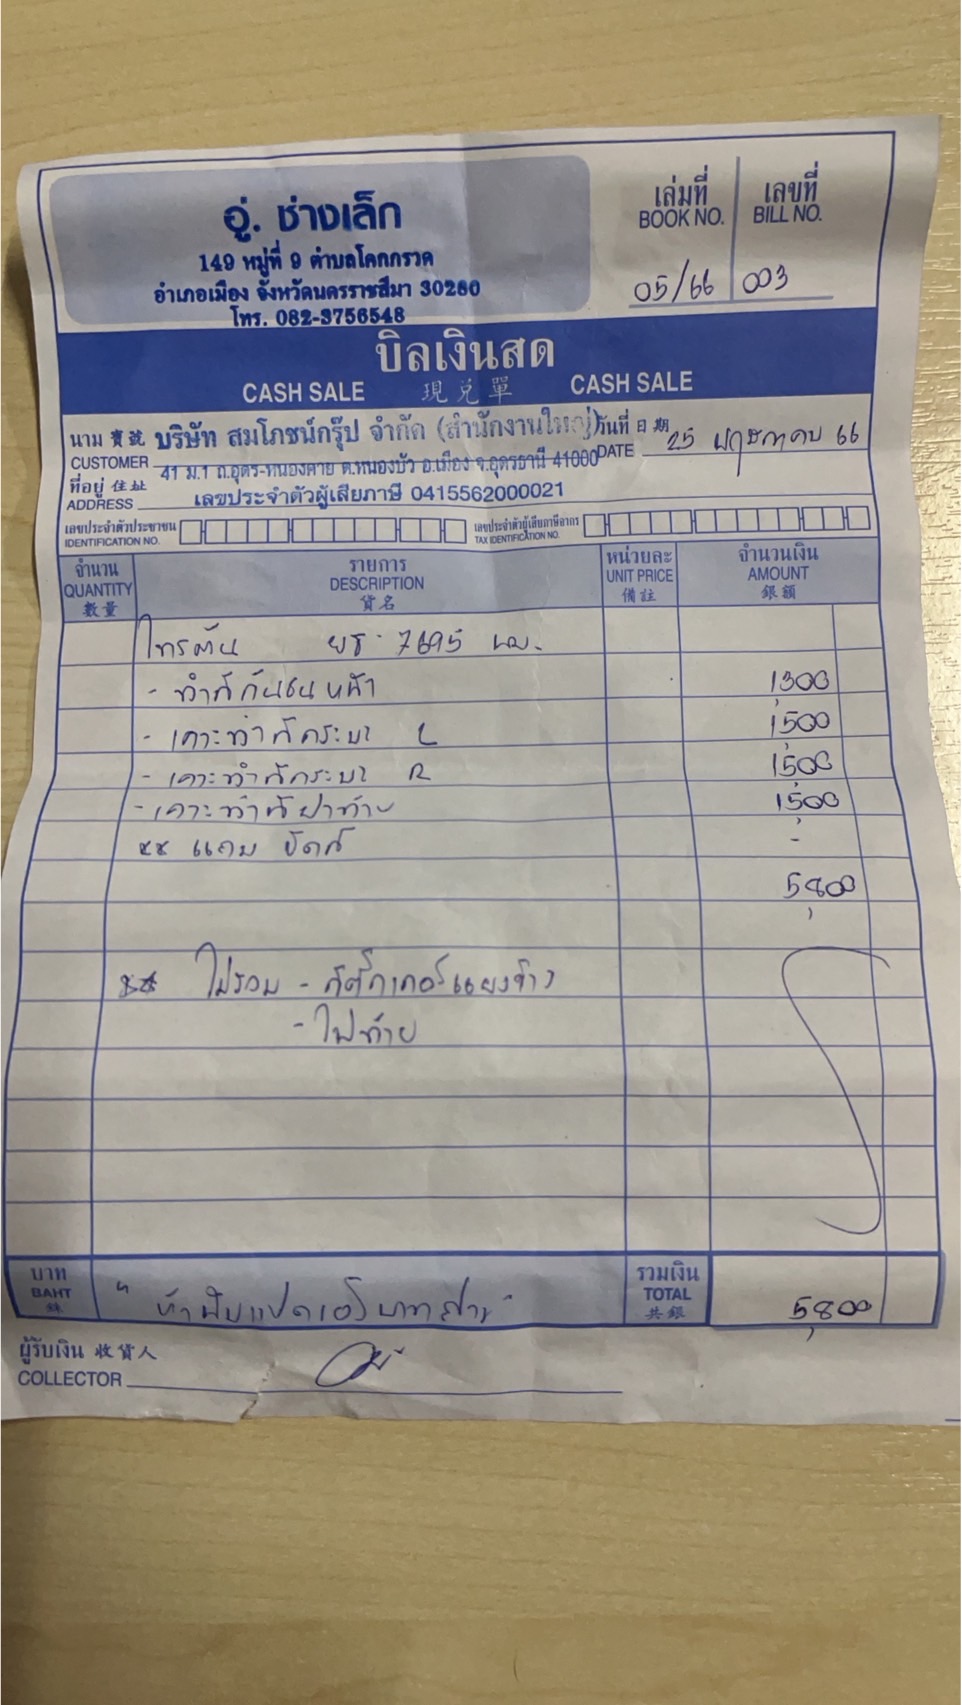 อู่. ช่างเล็ก
149 หมู่ที่ 9 ตำบลโคกกรวด
อำเภอเมือง จังหวัดนครราชสีมา 30280
โทร. 082-3756548
เล่มที่ เลขที่
BOOK NO. BILL NO.
05/66 003
บิลเงินสด
CASH SALE 現兌單 CASH SALE
นาม 寶號 บริษัท สมโภชน์กรุ๊ป จำกัด (สำนักงานใหญ่) วันที่ 日期
CUSTOMER 41 ม.1 ถ.อุดร-หนองคาย ต.หนองบัว อ.เมือง จ.อุดรธานี 41000 DATE 25 พฤษภาคม 66
ที่อยู่ 住址
ADDRESS เลขประจำตัวผู้เสียภาษี 0415562000021
เลขประจำตัวประชาชน เลขประจำตัวผู้เสียภาษีอากร
IDENTIFICATION NO. TAX IDENTIFICATION NO.
จำนวน รายการ หน่วยละ จำนวนเงิน
QUANTITY DESCRIPTION UNIT PRICE AMOUNT
數量 貨名 備註 銀額
ไทรตัน ยธ - 7695 นม.
- ทำสีกันชนหน้า 1,300
- เคาะทำสีกระบะ L 1,500
- เคาะทำสีกระบะ R 1,500
- เคาะทำสีฝาท้าย 1,500
** แถม ขัดสี -
5,800
** ไม่รวม - สติ๊กเกอร์แผงข้าง
- ไฟท้าย
บาท รวมเงิน
BAHT " ห้าพันแปดร้อยบาทถ้วน " TOTAL 5,800
銖 共銀
ผู้รับเงิน 收貨人
COLLECTOR